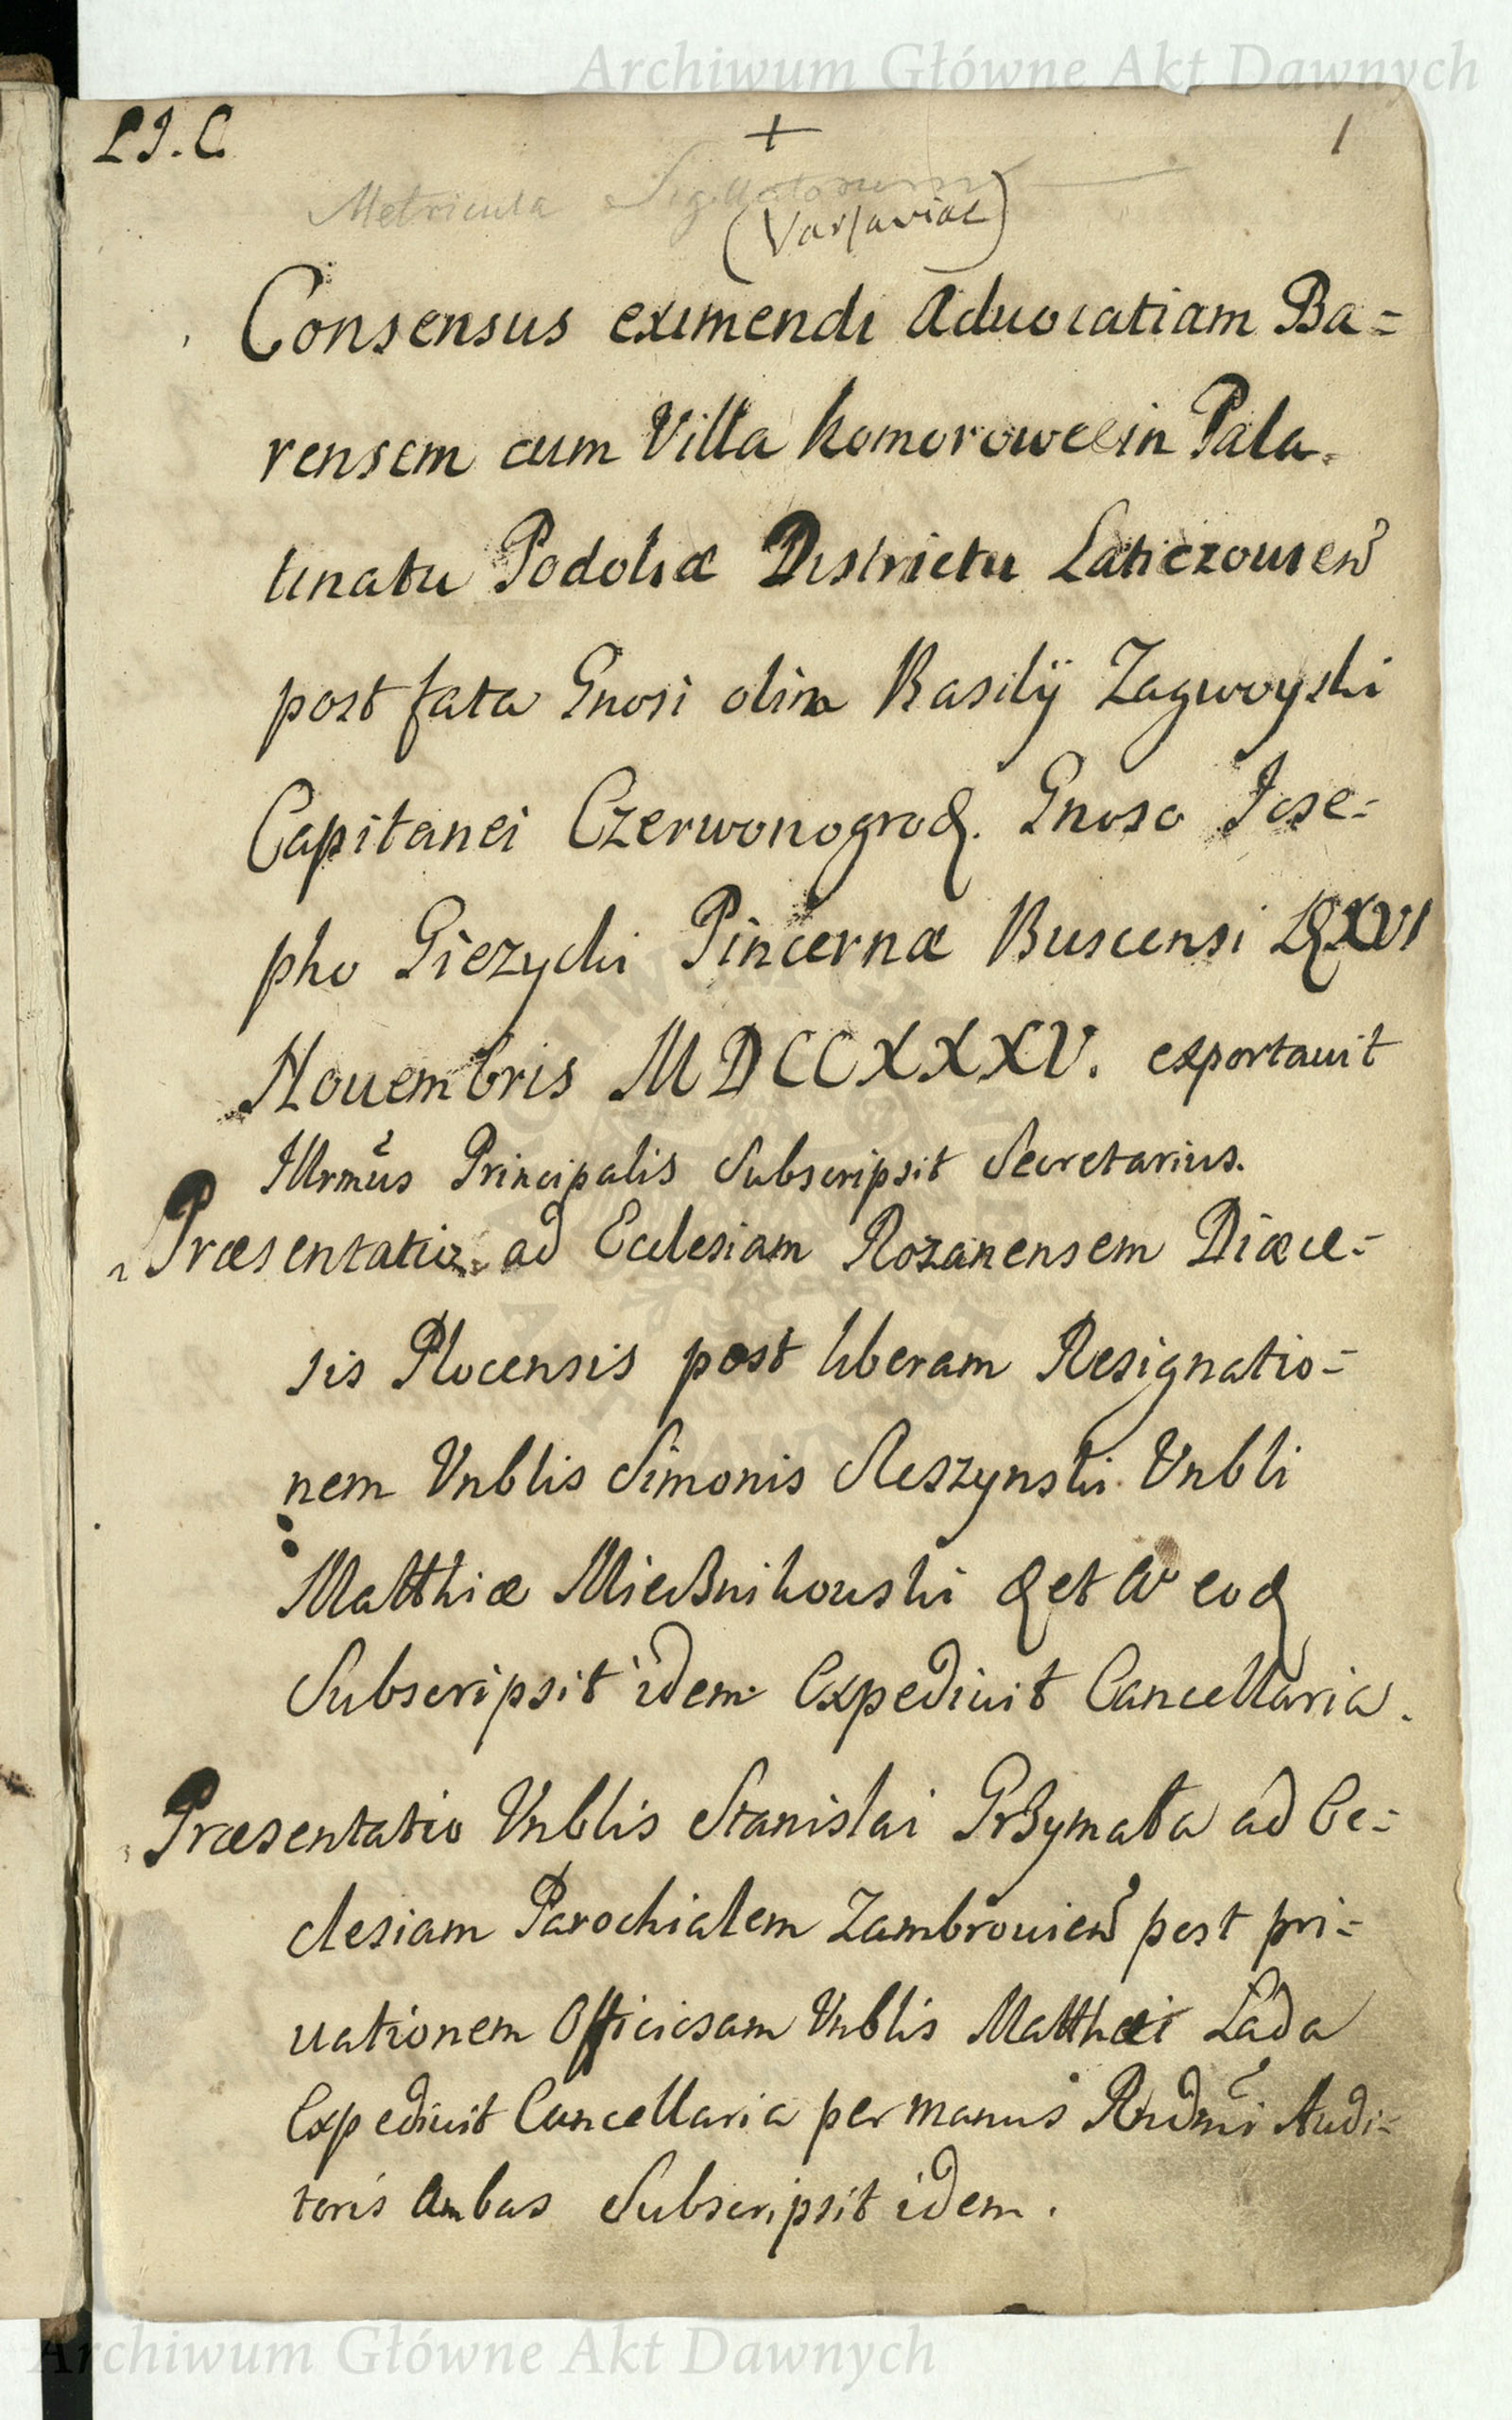 Archiwum Główne Akt Dawnych
LI. C.
+
1
Metricula Sigillatorum
(Varsaviae)
Consensus eximendi Aduocatiam Ba=
rensem cum Villa Komorowce in Pala=
tinatu Podoliæ Districtu Laticzouien
post fata Gnosi olim Basilij Zagwoyski
Capitanei Czerwonogrod. Gnoso Jose=
pho Giezycki Pincernæ Buscensi
Nouembris MDCCXXXV. exportauit
Illrmus Principalis Subscripsit Secretarius.
Præsentatio ad Ecclesiam Rozanensem Diæce=
sis Plocensis post liberam Resignatio=
nem Vnblis Simonis Reszynski Vnbli
Matthiæ Miecznikouski et eod
Subscripsit idem Expediuit Cancellaria.
Præsentatio Vnblis Stanislai Grzymała ad Ec=
clesiam Parochialem Zambrouien post pri=
uationem Officiosam Vnblis Matthæi Łada
Expediuit Cancellaria per manus Rndmi Audi=
toris Ambas Subscripsit idem.
Archiwum Główne Akt Dawnych